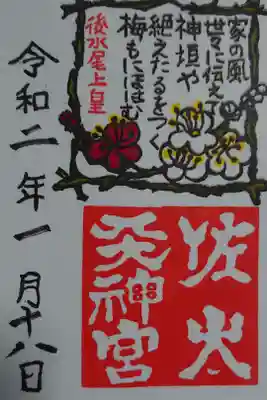 家の風
世々に伝えて
神垣や
絶えたるをつぐ
梅もにほはむ
後水尾上皇
佐太
天神宮
令和二年一月十八日